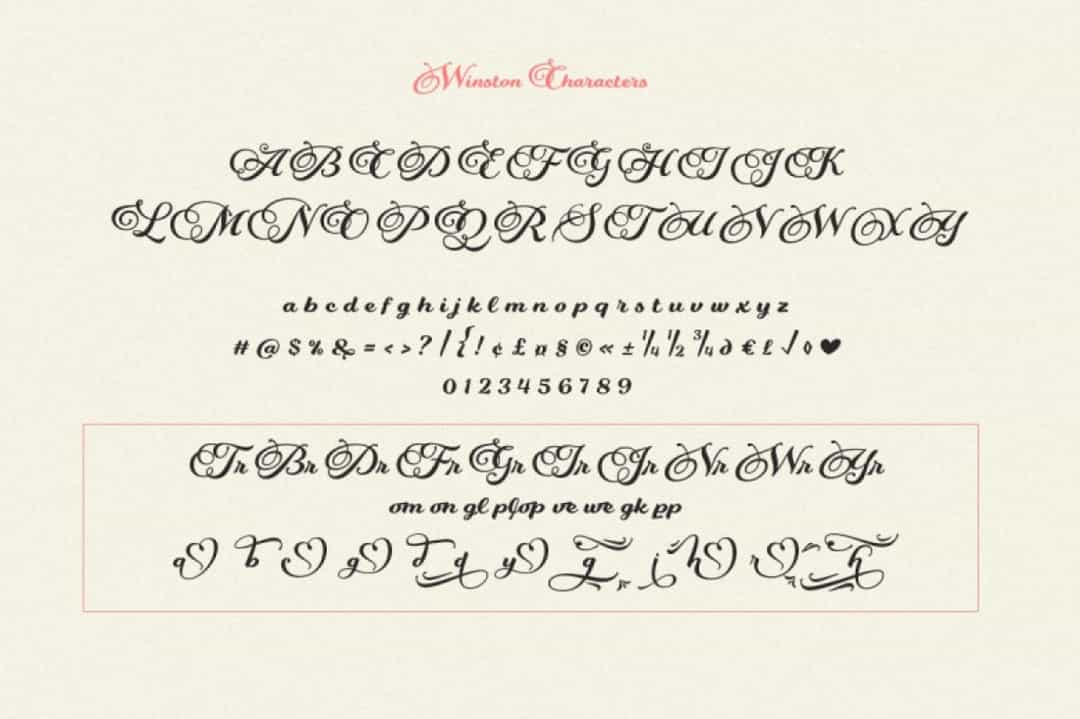 Winston Characters
A B C D E F G H I J K
L M N O P Q R S T U V W X Y
a b c d e f g h i j k l m n o p q r s t u v w x y z
# @ $ % & = < > ? / { ! ¢ £ ¤ § © « ± ¼ ½ ¾ ∂ € ℓ √ ◊ ♥
0 1 2 3 4 5 6 7 8 9
Tr Br Dr Fr Gr Ir Jr Vr Wr Yr
om on gl pl op ve we gk pp
a b g d y g j h r h